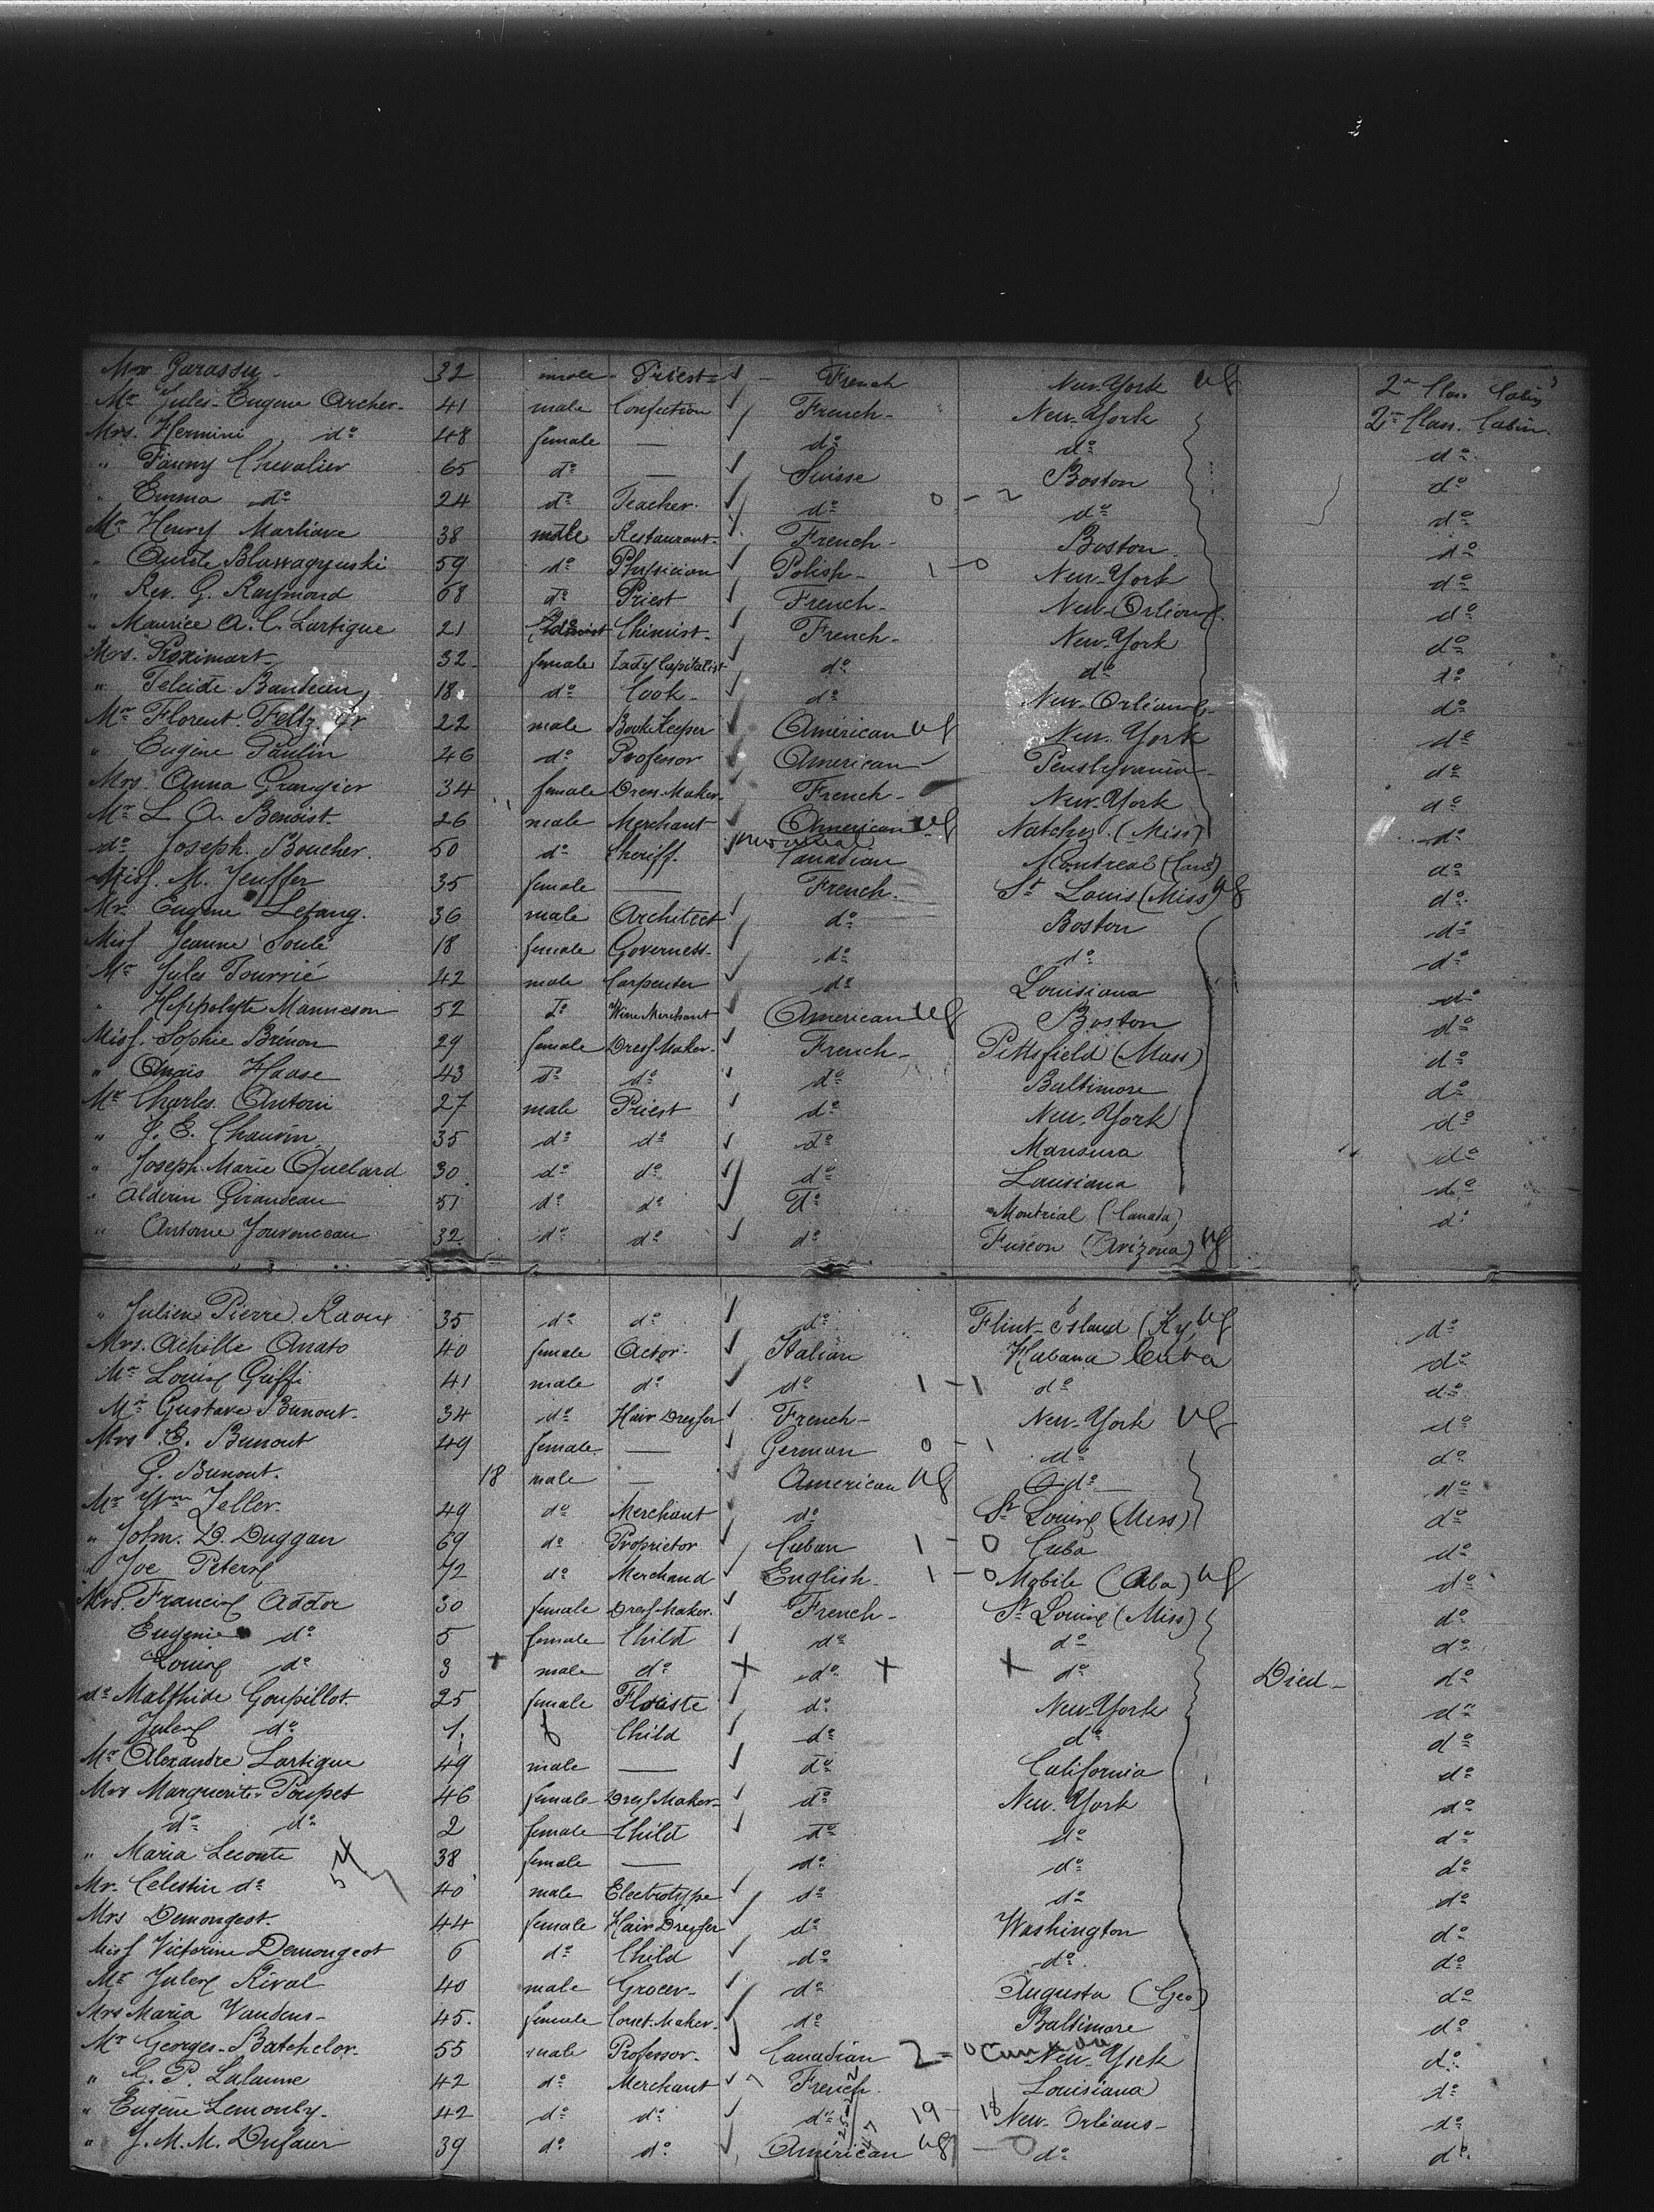 Mr Garassu - 32 male - Priest - French New-York US 2de Class Cabin
Mr Jules-Eugene Archer - 41 male Confection French - New-York 2de Class. Cabin.
Mrs. Hermini do 48 female — do do do
" Fanny Chevalier 65 do — Suisse Boston do
" Emma do 24 do Teacher. do 0 - 2 do do
Mr Henry Marliave 38 male Restaurant - French - Boston do
" 59 do Physician Polish - 1 - 0 New-York do
" Rev. G. Raymond 68 do Priest French - New-Orléans do
" Maurice A. C. Lartigue 21 do Chimist - French - New-York do
Mrs. Roximart - 32 female Lady Capitalist do do do
" Telcide Baudecin 18 do Cook - do New-Orléans - do
Mr Florent Feltz Jr 22 male Book Keeper American US New-York do
" Eugène Paulin 46 do Professor American - Penslyvania - do
Mrs. Anna Grangier 34 female Dress Maker - French - New-York do
Mr L. A. Benoist. 26 male Merchant American US Natchez. (Miss) do
do Joseph. Boucher. 50 do Sheriff. Canadian Montreal (Can) do
Miss. M. Jeuffer 35 female — French. St Louis (Miss) US do
Mr Eugène Letang. 36 male Architect do Boston do
Miss Jeanne Soulé 18 female Governess - do do do
Mr Jules Tourrié 42 male Carpenter do Louisiana do
" Hippolyte Manneson 52 do Wine Merchant American US Boston do
Miss. Sophie Brénon 29 female Dress Maker - French - Pittsfield (Mass) do
" Anais Haase 43 do do do Baltimore do
Mr Charles Antoni 27 male Priest do New-York do
" J. E. Chauvin 35 do do do Mansura do
" Joseph-Marie Quelard 30 do do do Louisiana do
" Alderin Girandeau 51 do do do Montréal (Canada) do
" Antoine Jouvenceau 32 do do do Fuscon (Arizona) US do
" Julien Pierre Raoux 35 do do do Flint-Island (Ky) US do
Mrs. Achille Amato 40 female Actor - Italian Habana Cuba do
Mr Louis Griffi 41 male do do 1 - 1 do do
Mr Gustave Bunout - 34 do Hair Dresser French - New-York US do
Mrs E. Bunout 49 female — German 0 - 1 do do
G. Bunout. 18 male — American US do do
Mr Wm Zeller - 49 do Merchant do St Louis (Miss) do
" John. D. Duggan 69 do Proprietor Cuban 1 - 0 Cuba do
" Joe Peters 72 do Merchand English - 1 - 0 Mobile (Aba) US do
Mrs. Francis Addor 30 female Dress Maker. French - St Louis (Miss) do
Eugenie do 5 female Child do do do
Louis do 3 + male do + do + + do Died - do
do Malthide Goupillot 25 female Floriste do New-York do
Jules do 1 f Child do do do
Mr Alexandre Lartigue 49 male — do California do
Mrs Marguerite Poupet 46 female Dress Maker - do New-York do
do do 2 female Child do do do
" Maria Leconte 38 female — do do do
Mr. Celestin do 40 male Electrotype do do do
Mrs Demongeot. 44 female Hair Dresser do Washington do
Miss Victorine Demongeot 6 do Child do do do
Mr Jules Rival 40 male Grocer - do Augusta (Geo) do
Mrs Maria Vandens - 45. female Corset-Maker - do Baltimore do
Mr Georges-Batchelor - 55 male Professor - Canadian 2 - 0 Canada New-York do
" G. P. Lalanne 42 do Merchant French. Louisiana do
" Eugène Lemonly - 42 do do do 19 - 18 New-Orléans - do
" J. M. M. Dufaur 39 do do Américan US - 0 do do